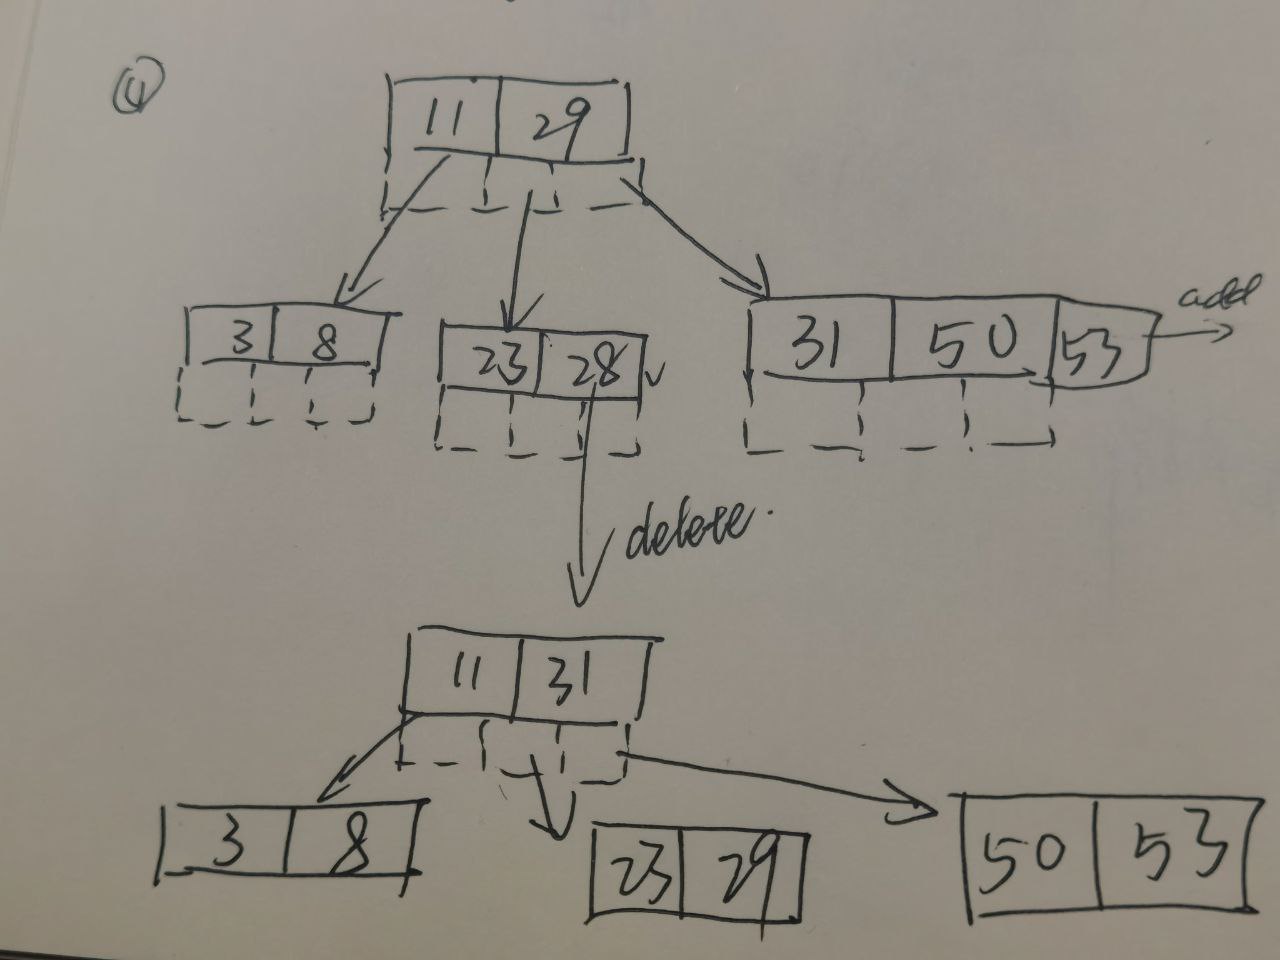 ④
11 29
3 8 23 28 31 50 53 add
delete.
11 31
3 8 23 29 50 53